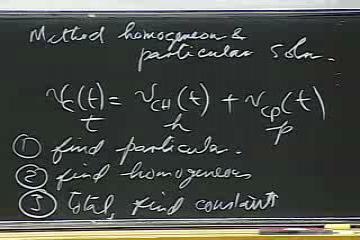 Method homogeneous &
particular soln.
v_C(t) = v_CH(t) + v_CP(t)
t h p
① find particular.
② find homogeneous
③ total, find constants